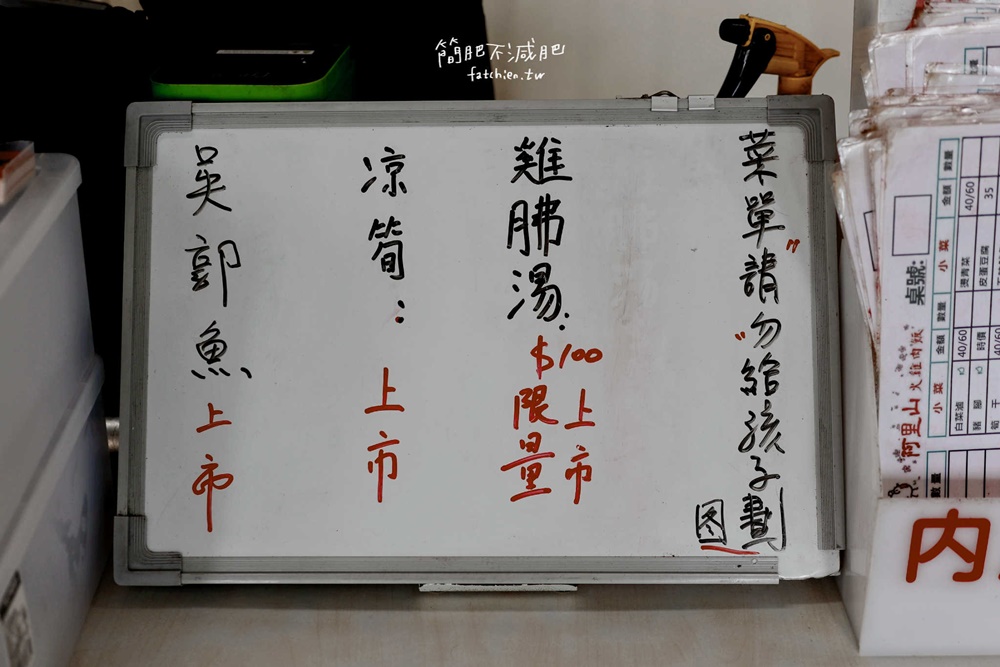 簡肥不減肥
fatchien.tw
菜單請"勿"給孩子劃
图
雞胇湯:
$100
上市
限量
凉筍:
上市
吴郭魚
上市
內
桌號:
阿里山火雞肉飯
小菜
金額
數量
白菜滷
40/60
豬腳
時價
筍干
40/60
小菜
金額
數量
燙青菜
40/60
皮蛋豆腐
35
數量